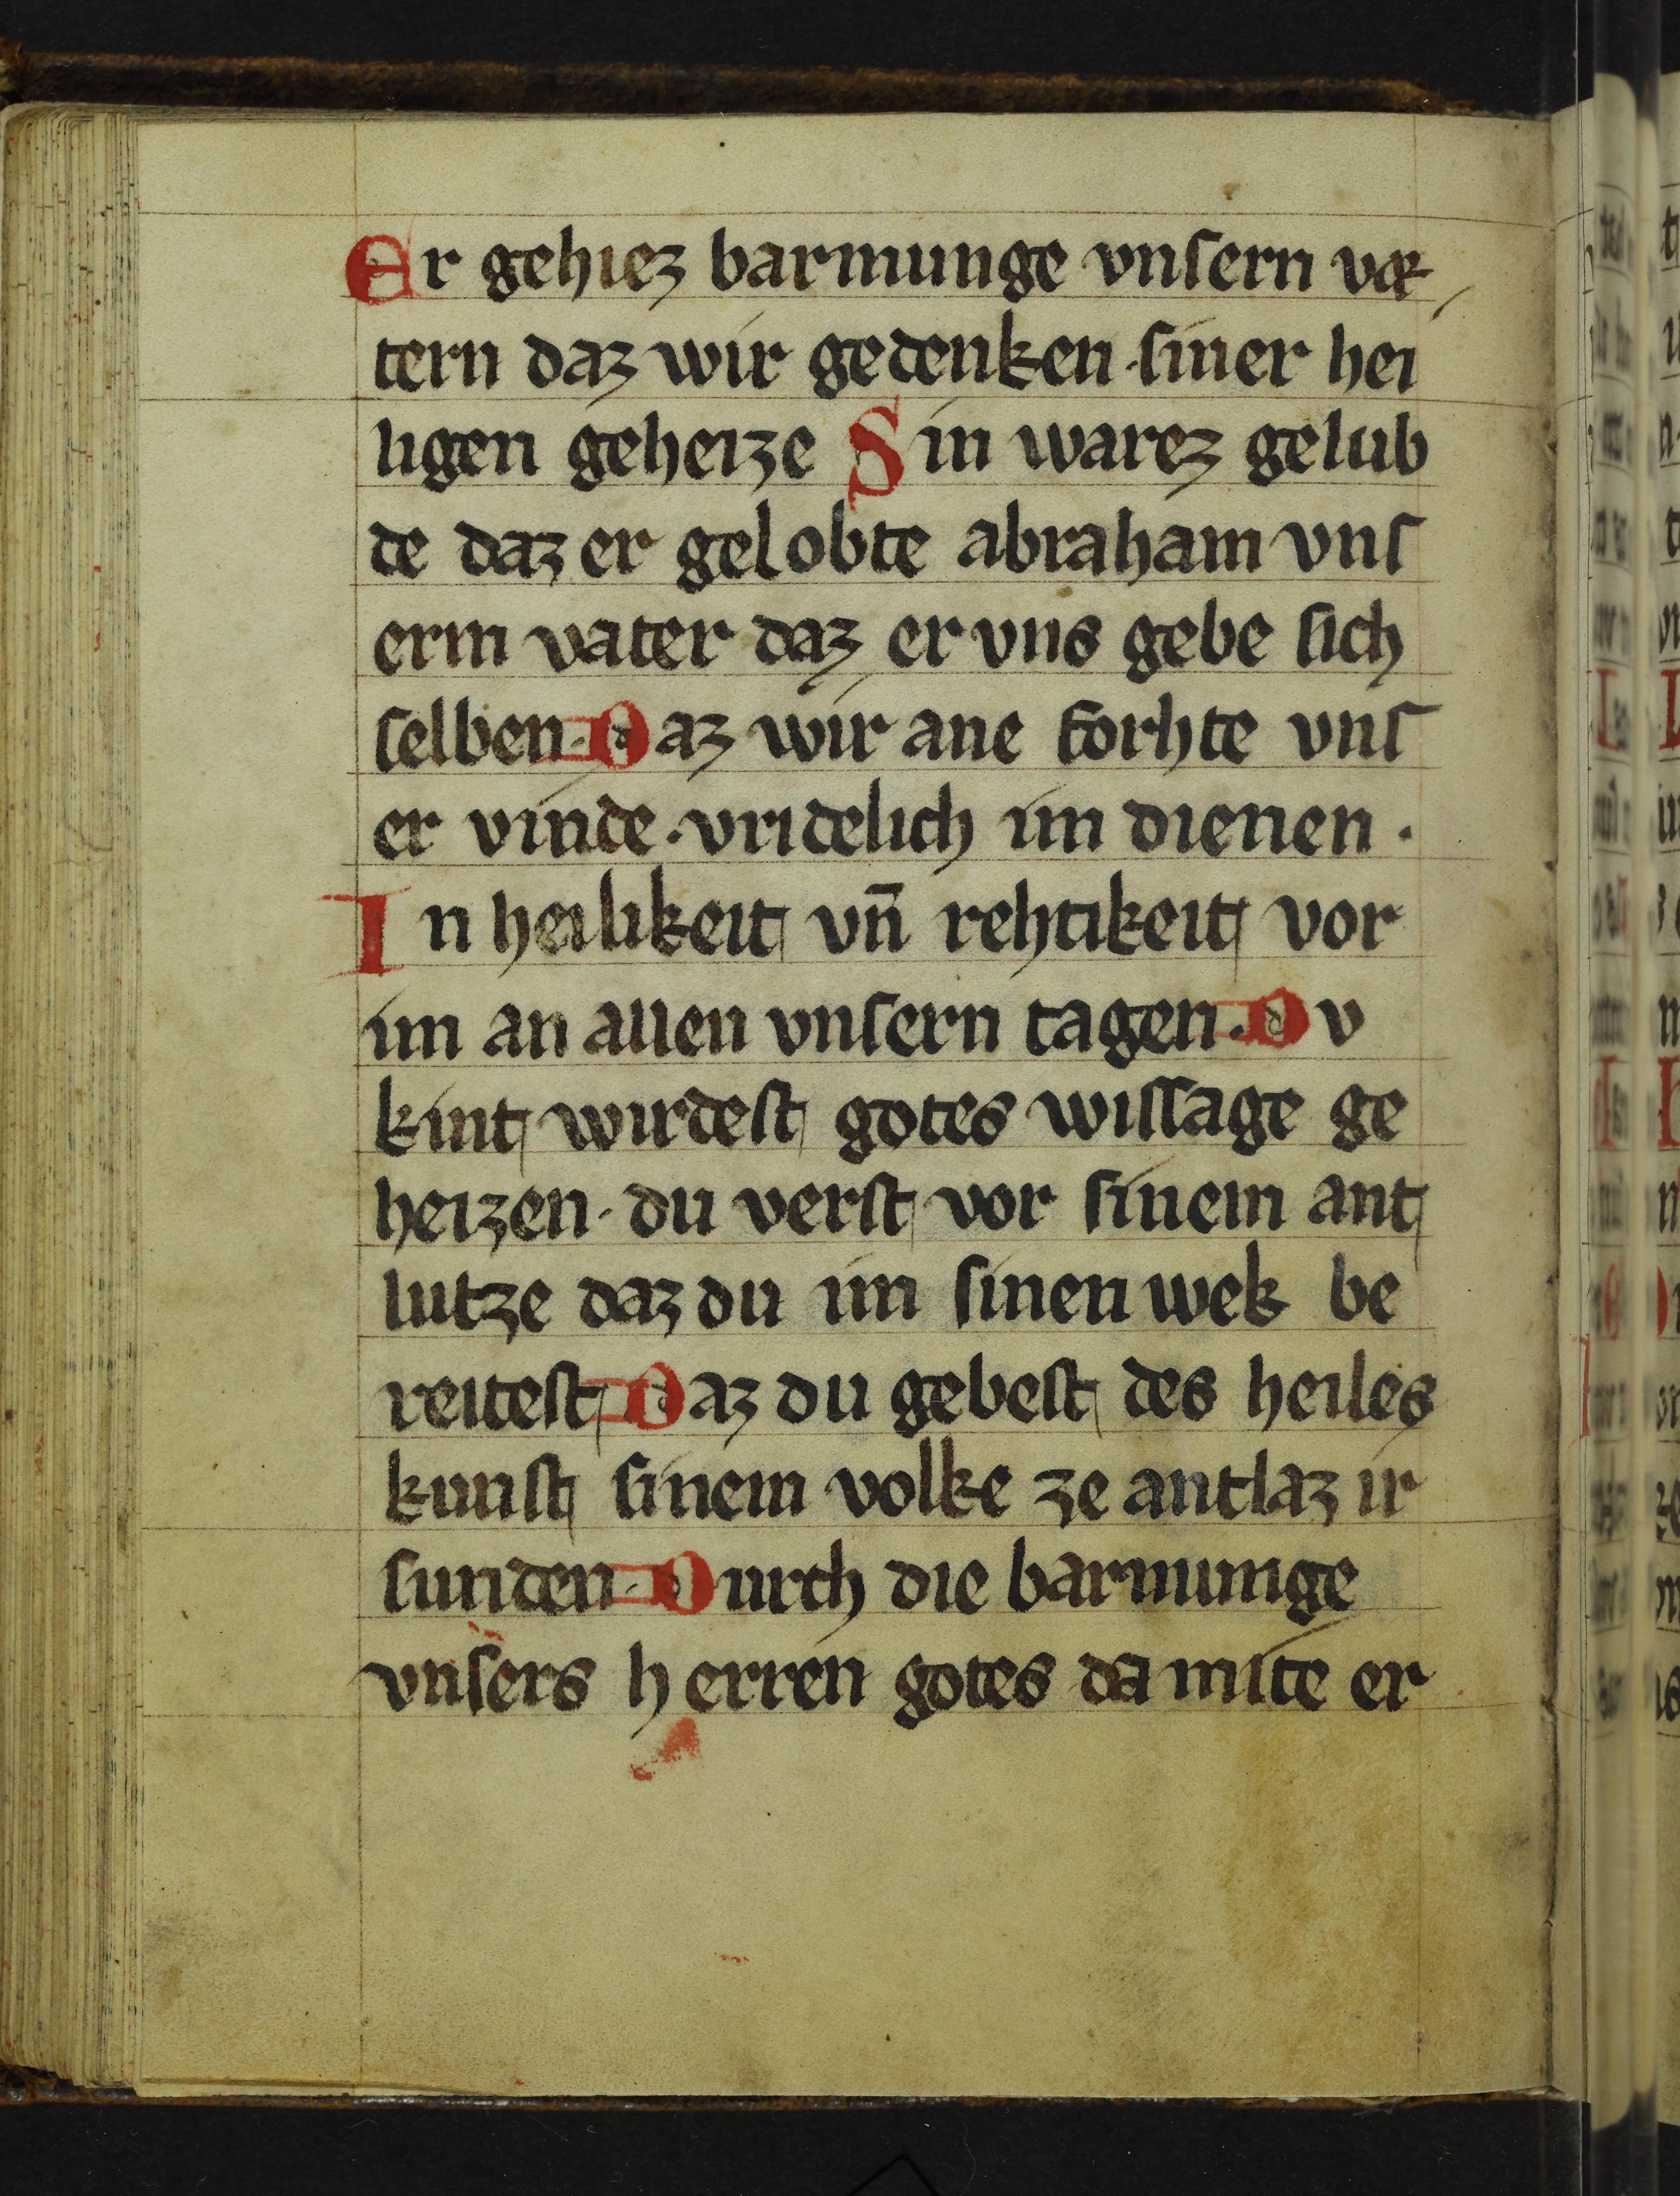 Er gehiez barmunge vnſern væ
tern daz wir gedenken ſiner hei
ligen geheize Sin warez gelub
de daz er gelobte abraham vnſ
erm vater daz er vns gebe ſich
ſelben. Daz wir ane forhte vnſ
er vinde. vridelich im dienen.
In heilikeit vn̄ rehtikeit vor
im an allen vnſern tagen. Dv
kint wirdeſt gotes wiſſage ge
heizen. du verſt vor ſinem ant
lutze daz du im ſinen wek be
reiteſt Daz du gebeſt des heiles
kunſt ſinem volke ze antlaz ir
ſunden. Durch die barmunge
vnſers herren gotes da mite er